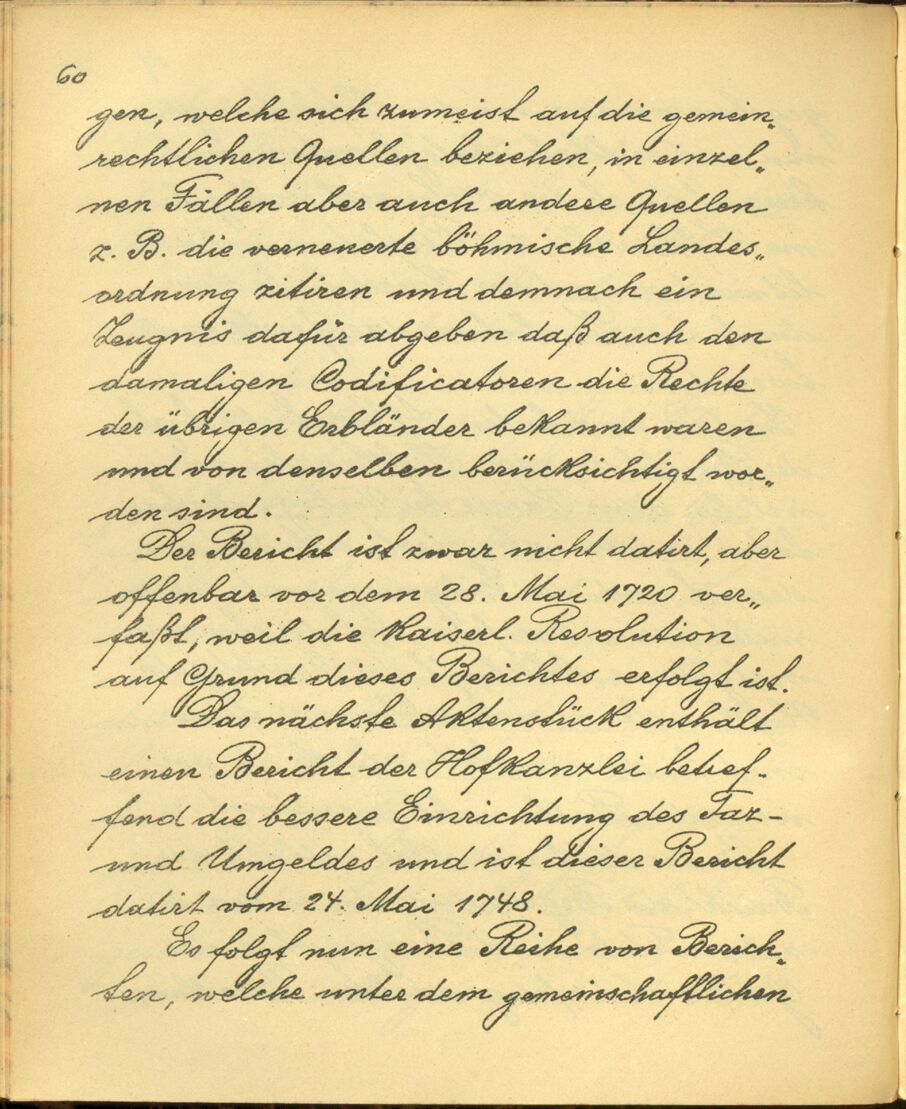 60
gen, welche sich zumeist auf die gemein„
rechtlichen Quellen beziehen, in einzel„
nen Fällen aber auch andere Quellen
z. B. die verneuerte böhmische Landes„
ordnung zitiren und demnach ein
Zeugnis dafür abgeben daß auch den
damaligen Codificatoren die Rechte
der übrigen Erbländer bekannt waren
und von denselben berücksichtigt wor„
den sind.
Der Bericht ist zwar nicht datirt, aber
offenbar vor dem 28. Mai 1720 ver„
faßt, weil die Kaiserl. Resolution
auf Grund dieses Berichtes erfolgt ist.
Das nächste Aktenstück enthält
einen Bericht der Hofkanzlei betref„
fend die bessere Einrichtung des Taz-
und Umgeldes und ist dieser Bericht
datirt vom 24. Mai 1748.
Es folgt nun eine Reihe von Berich„
ten, welche unter dem gemeinschaftlichen